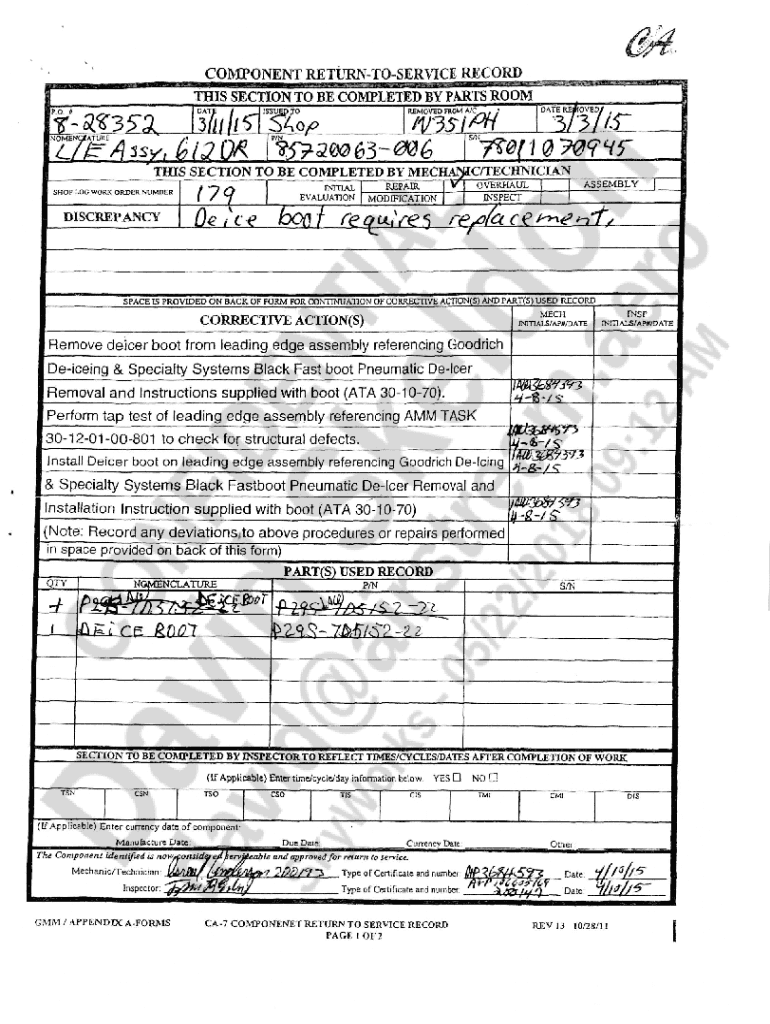 CA
COMPONENT RETURN-TO-SERVICE RECORD
THIS SECTION TO BE COMPLETED BY PARTS ROOM
P.O. # DATE ISSUED TO REMOVED FROM A/C DATE REMOVED
8-28352 3/11/15 Shop N351PH 3/3/15
NOMENCLATURE P/N S/N
L/E Assy, 612DR 85720063-006 78011070945
THIS SECTION TO BE COMPLETED BY MECHANIC/TECHNICIAN
SHOP LOG WORK ORDER NUMBER 179 INITIAL EVALUATION REPAIR ✓ MODIFICATION OVERHAUL INSPECT ASSEMBLY
DISCREPANCY Deice boot requires replacement.
SPACE IS PROVIDED ON BACK OF FORM FOR CONTINUATION OF CORRECTIVE ACTION(S) AND PART(S) USED RECORD
CORRECTIVE ACTION(S) MECH INITIALS/AP#/DATE INSP INITIALS/AP#/DATE
Remove deicer boot from leading edge assembly referencing Goodrich
De-iceing & Specialty Systems Black Fast boot Pneumatic De-Icer
Removal and Instructions supplied with boot (ATA 30-10-70). 4-8-15
Perform tap test of leading edge assembly referencing AMM TASK
30-12-01-00-801 to check for structural defects. 4-8-15
Install Deicer boot on leading edge assembly referencing Goodrich De-Icing 4-8-15
& Specialty Systems Black Fastboot Pneumatic De-Icer Removal and
Installation Instruction supplied with boot (ATA 30-10-70) 4-8-15
(Note: Record any deviations to above procedures or repairs performed
in space provided on back of this form)
PART(S) USED RECORD
QTY NOMENCLATURE P/N S/N
1 DEICE BOOT P29S-7D5152-22
1 DEICE BOOT P29S-7D5152-22
SECTION TO BE COMPLETED BY INSPECTOR TO REFLECT TIMES/CYCLES/DATES AFTER COMPLETION OF WORK
(If Applicable) Enter time/cycle/day information below YES ☐ NO ☐
TSN CSN TSO CSO TIS CIS TMI CMI DIS
(If Applicable) Enter currency date of component:
Manufacture Date: Due Date: Currency Date Other
The Component identified is now considered serviceable and approved for return to service.
Mechanic/Technician: Type of Certificate and number: Date: 4/10/15
Inspector: Type of Certificate and number: Date: 4/10/15
GMM / APPENDIX A-FORMS CA-7 COMPONENET RETURN TO SERVICE RECORD REV 13 10/28/11
PAGE 1 OF 2